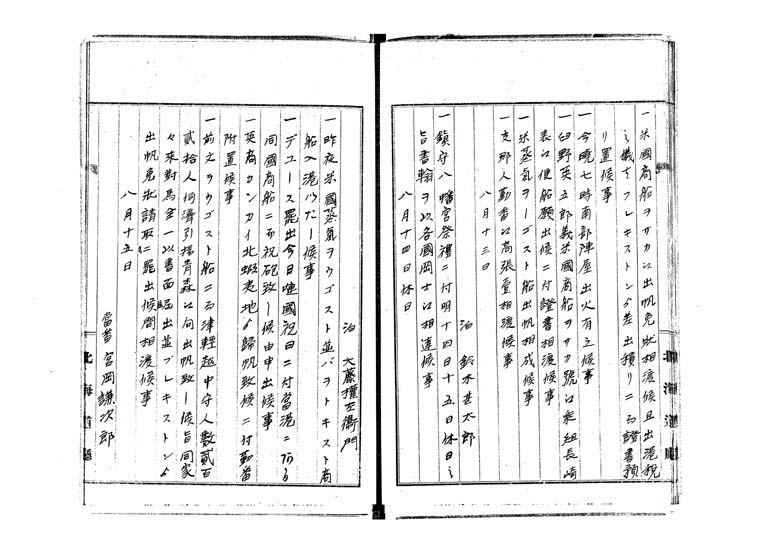 一 米國商船ヲサカ江出帆免狀相渡候且出港税
之儀者フレキストンゟ差出積リニ而證書預
リ置候事
一 今曉七時南部陣屋出火有之候事
一 臼野英五郎義米國商船ヲサカ號江乘組長崎
表江便船願出候ニ付證書相渡候事
一 米蒸氣ヲーゴスト船出帆相成候事
一 支那人勤番江高張壹相渡候事
八月十三日
泊 鈴木甚太郎
一 鎮守八幡宮祭禮ニ付明十四日十五日休日之
旨書翰ヲ以各國岡士江相達候事
八月十四日休日
泊 大藤權左衞門
一 昨夜米國蒸氣ヲウゴスト並バヲトキスト商
船入港いたし候事
一 デユース罷出今日嗹國祝日ニ付當港ニ有る
同國商船ニ而祝砲致し候由申出候事
一 英商カンカイ北蝦夷地ゟ歸帆致候ニ付勤番
附置候事
一 前文ヲウゴスト船ニ而津輕越中守人數貳百
貳拾人伺濟引揚青森江向出帆致し候旨同家
々來對馬全一以書面届出並ブレキストンゟ
出帆免狀請取ニ罷出候間相渡候事
八月十五日
當番 宮岡謙次郎
北海道廳